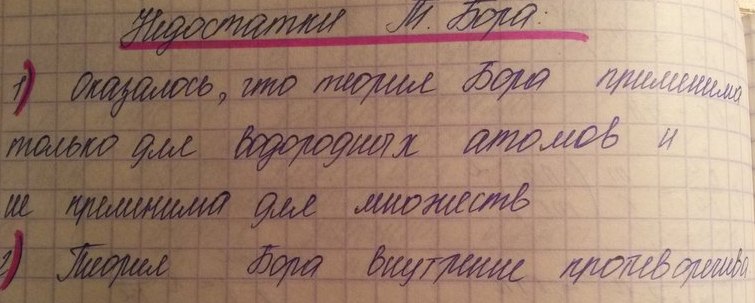 Недостатки Т. Бора:
1) Оказалось, что теория Бора применима
только для водородных атомов и
не применима для множеств
2) Теория Бора внутренне противоречива